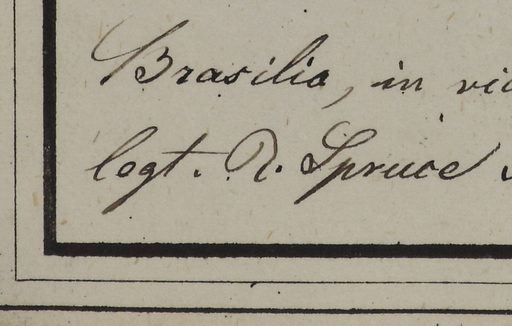 Brasilia, in vic
legt. R. Spruce